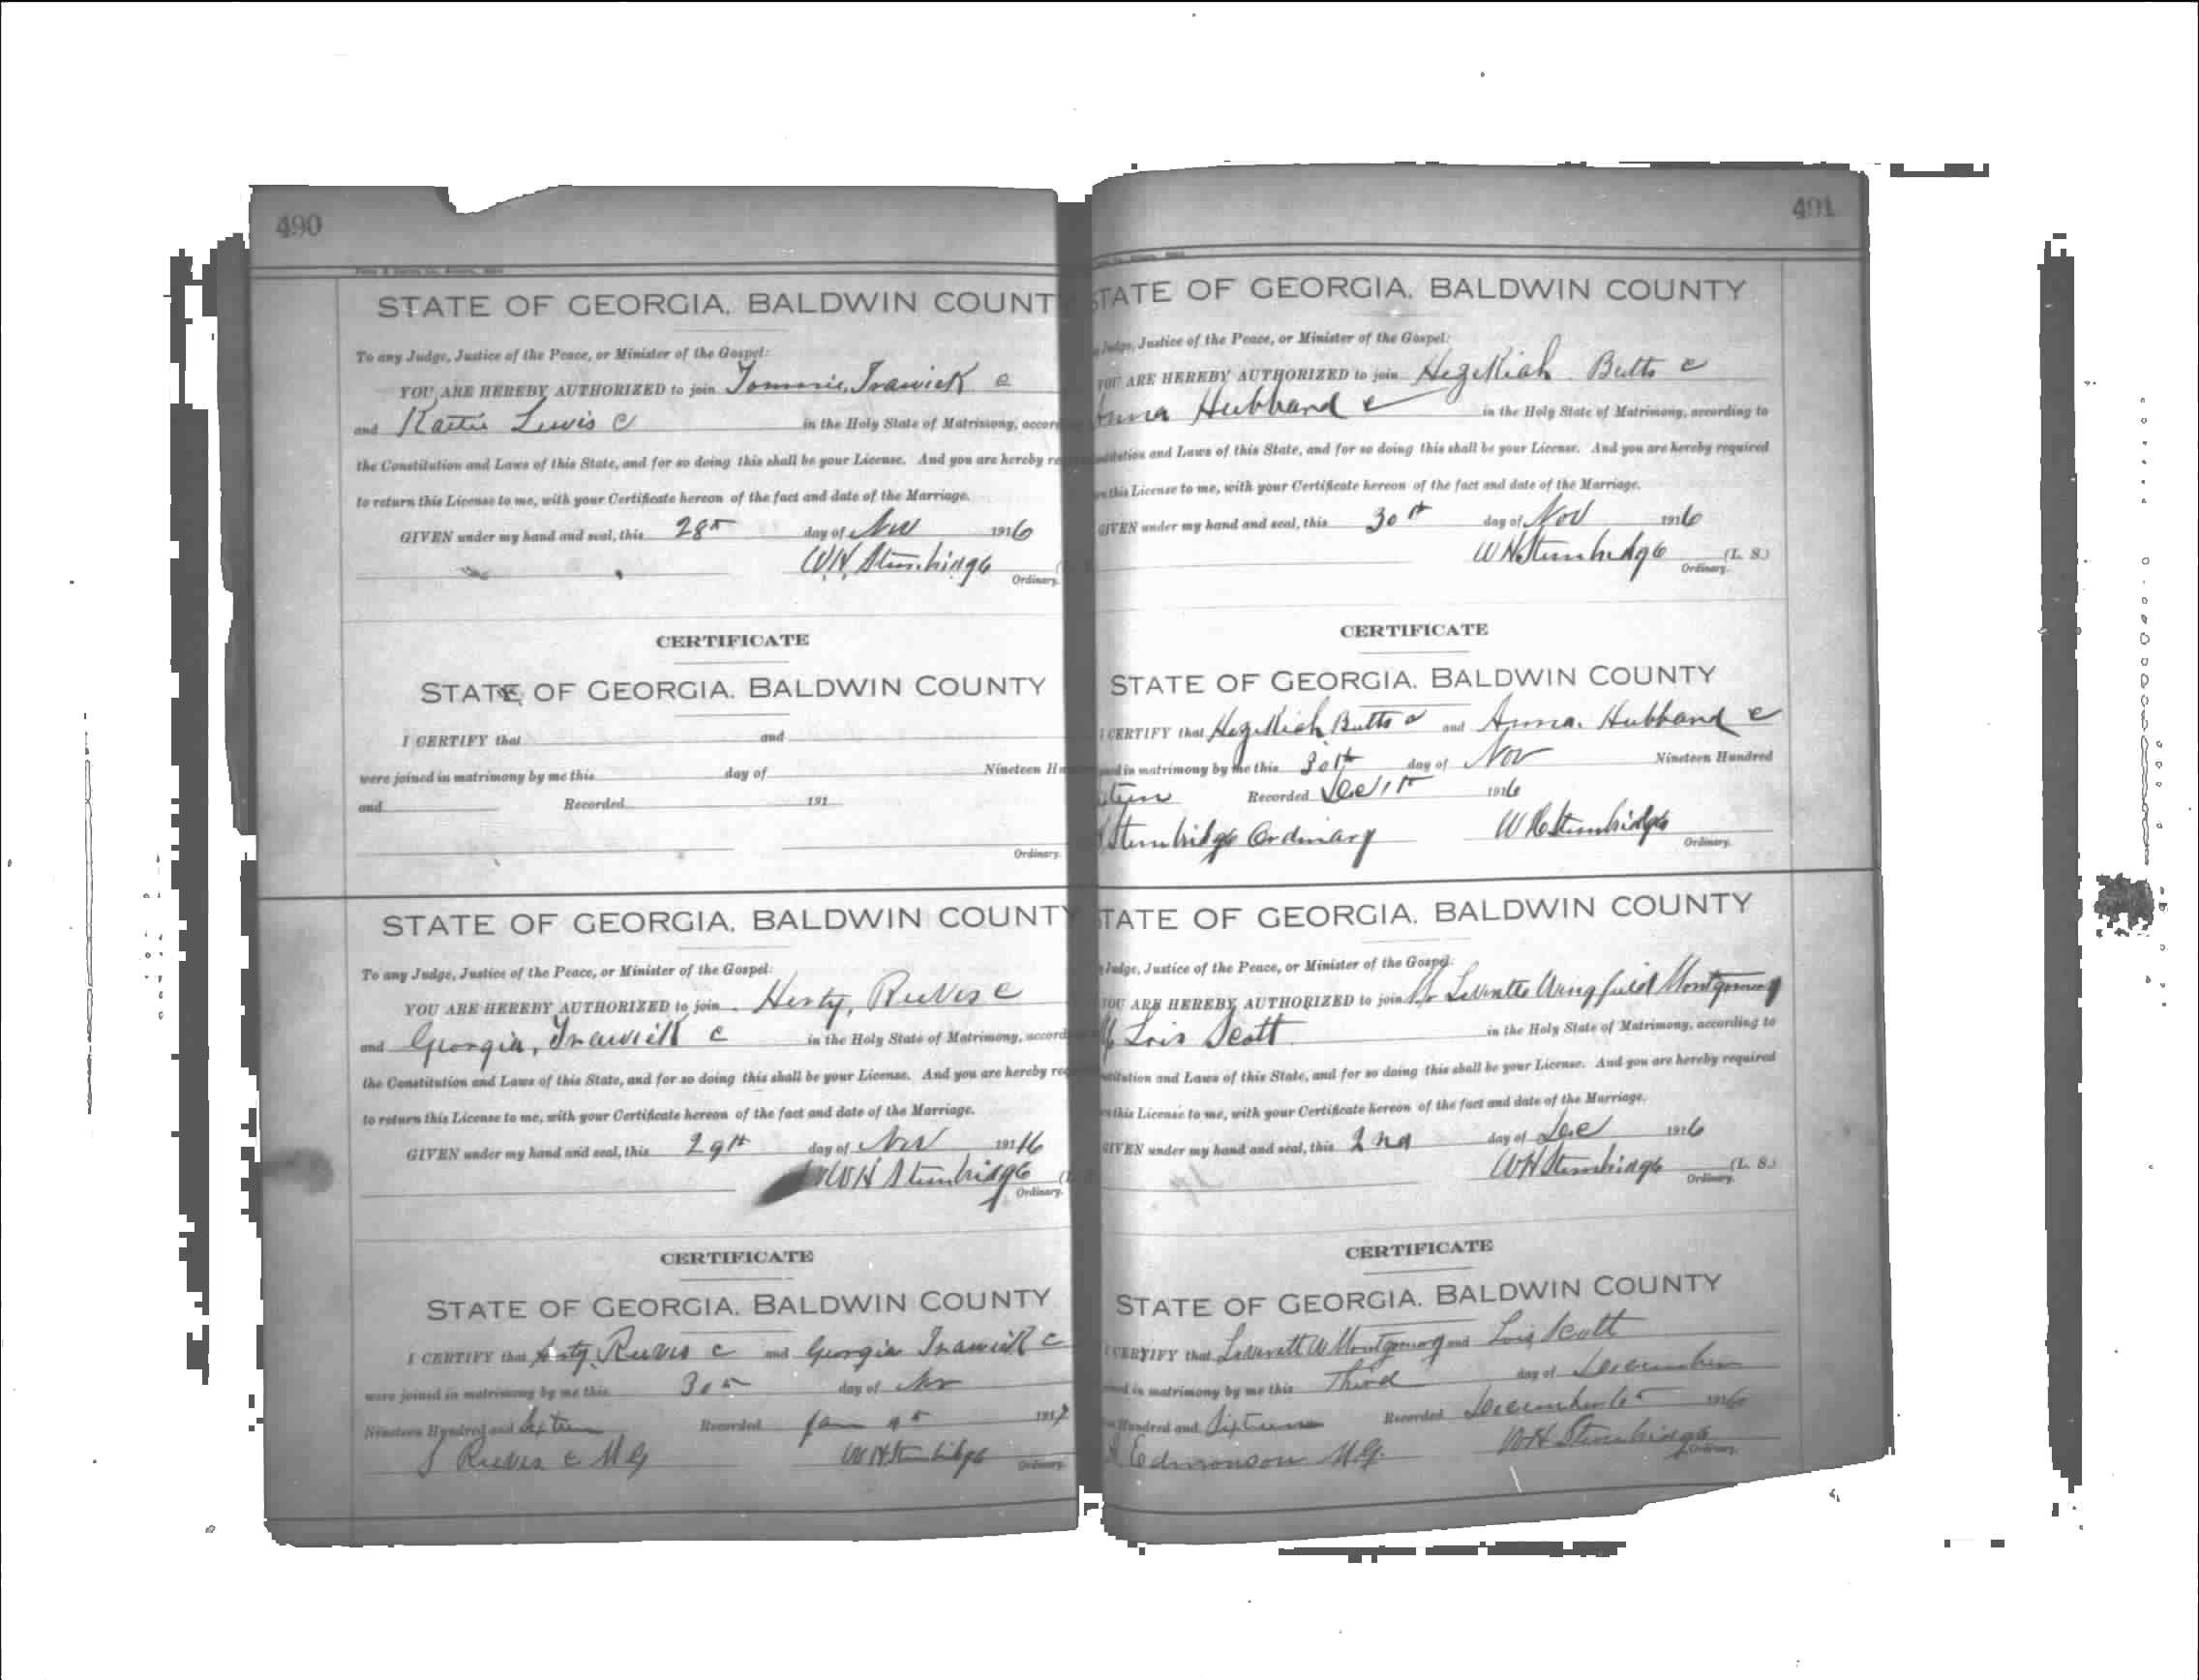 490
STATE OF GEORGIA. BALDWIN COUNT
To any Judge, Justice of the Peace, or Minister of the Gospel:
YOU ARE HEREBY AUTHORIZED to join Tommie, Trawick c
and Katie Lewis c in the Holy State of Matrimony, accor
the Constitution and Laws of this State, and for so doing this shall be your License. And you are hereby re
to return this License to me, with your Certificate hereon of the fact and date of the Marriage.
GIVEN under my hand and seal, this 28th day of Nov 1916
W.H. Stembridge
Ordinary.
CERTIFICATE
STATE OF GEORGIA. BALDWIN COUNTY
I CERTIFY that and
were joined in matrimony by me this day of Nineteen Hu
and Recorded 191
Ordinary.
STATE OF GEORGIA. BALDWIN COUNTY
To any Judge, Justice of the Peace, or Minister of the Gospel:
YOU ARE HEREBY AUTHORIZED to join Hesty, Reeves c
and Georgia, Trawick c in the Holy State of Matrimony, accord
the Constitution and Laws of this State, and for so doing this shall be your License. And you are hereby req
to return this License to me, with your Certificate hereon of the fact and date of the Marriage.
GIVEN under my hand and seal, this 29th day of Nov 1916
WH Stembridge
Ordinary.
CERTIFICATE
STATE OF GEORGIA. BALDWIN COUNTY
I CERTIFY that Hesty Reeves c and Georgia Trawick c
were joined in matrimony by me this 30th day of Nov
Nineteen Hundred and Sixteen Recorded Jan 1917
Reeves c M G WH Stembridge
Ordinary.
491
STATE OF GEORGIA. BALDWIN COUNTY
Judge, Justice of the Peace, or Minister of the Gospel:
YOU ARE HEREBY AUTHORIZED to join Hezekiah Butts c
Anna Hubbard c in the Holy State of Matrimony, according to
stitution and Laws of this State, and for so doing this shall be your License. And you are hereby required
this License to me, with your Certificate hereon of the fact and date of the Marriage.
GIVEN under my hand and seal, this 30th day of Nov 1916
WH Stembridge (L. S.)
Ordinary.
CERTIFICATE
STATE OF GEORGIA. BALDWIN COUNTY
I CERTIFY that Hezekiah Butts c and Anna Hubbard c
in matrimony by me this 30th day of Nov Nineteen Hundred
Recorded Dec 1st 1916
Stembridge Ordinary WH Stembridge
Ordinary.
TATE OF GEORGIA. BALDWIN COUNTY
Judge, Justice of the Peace, or Minister of the Gospel:
YOU ARE HEREBY AUTHORIZED to join Mr Leventte Wingfield Montgomery
Lois Scott in the Holy State of Matrimony, according to
stitution and Laws of this State, and for so doing this shall be your License. And you are hereby required
this License to me, with your Certificate hereon of the fact and date of the Marriage.
GIVEN under my hand and seal, this 2nd day of Dec 1916
WH Stembridge (L. S.)
Ordinary.
CERTIFICATE
STATE OF GEORGIA. BALDWIN COUNTY
I CERTIFY that Leverett W Montgomery and Lois Scott
in matrimony by me this Third day of December
Hundred and Sixteen Recorded December 1916
Edmonson M.G. WH Stembridge
Ordinary.